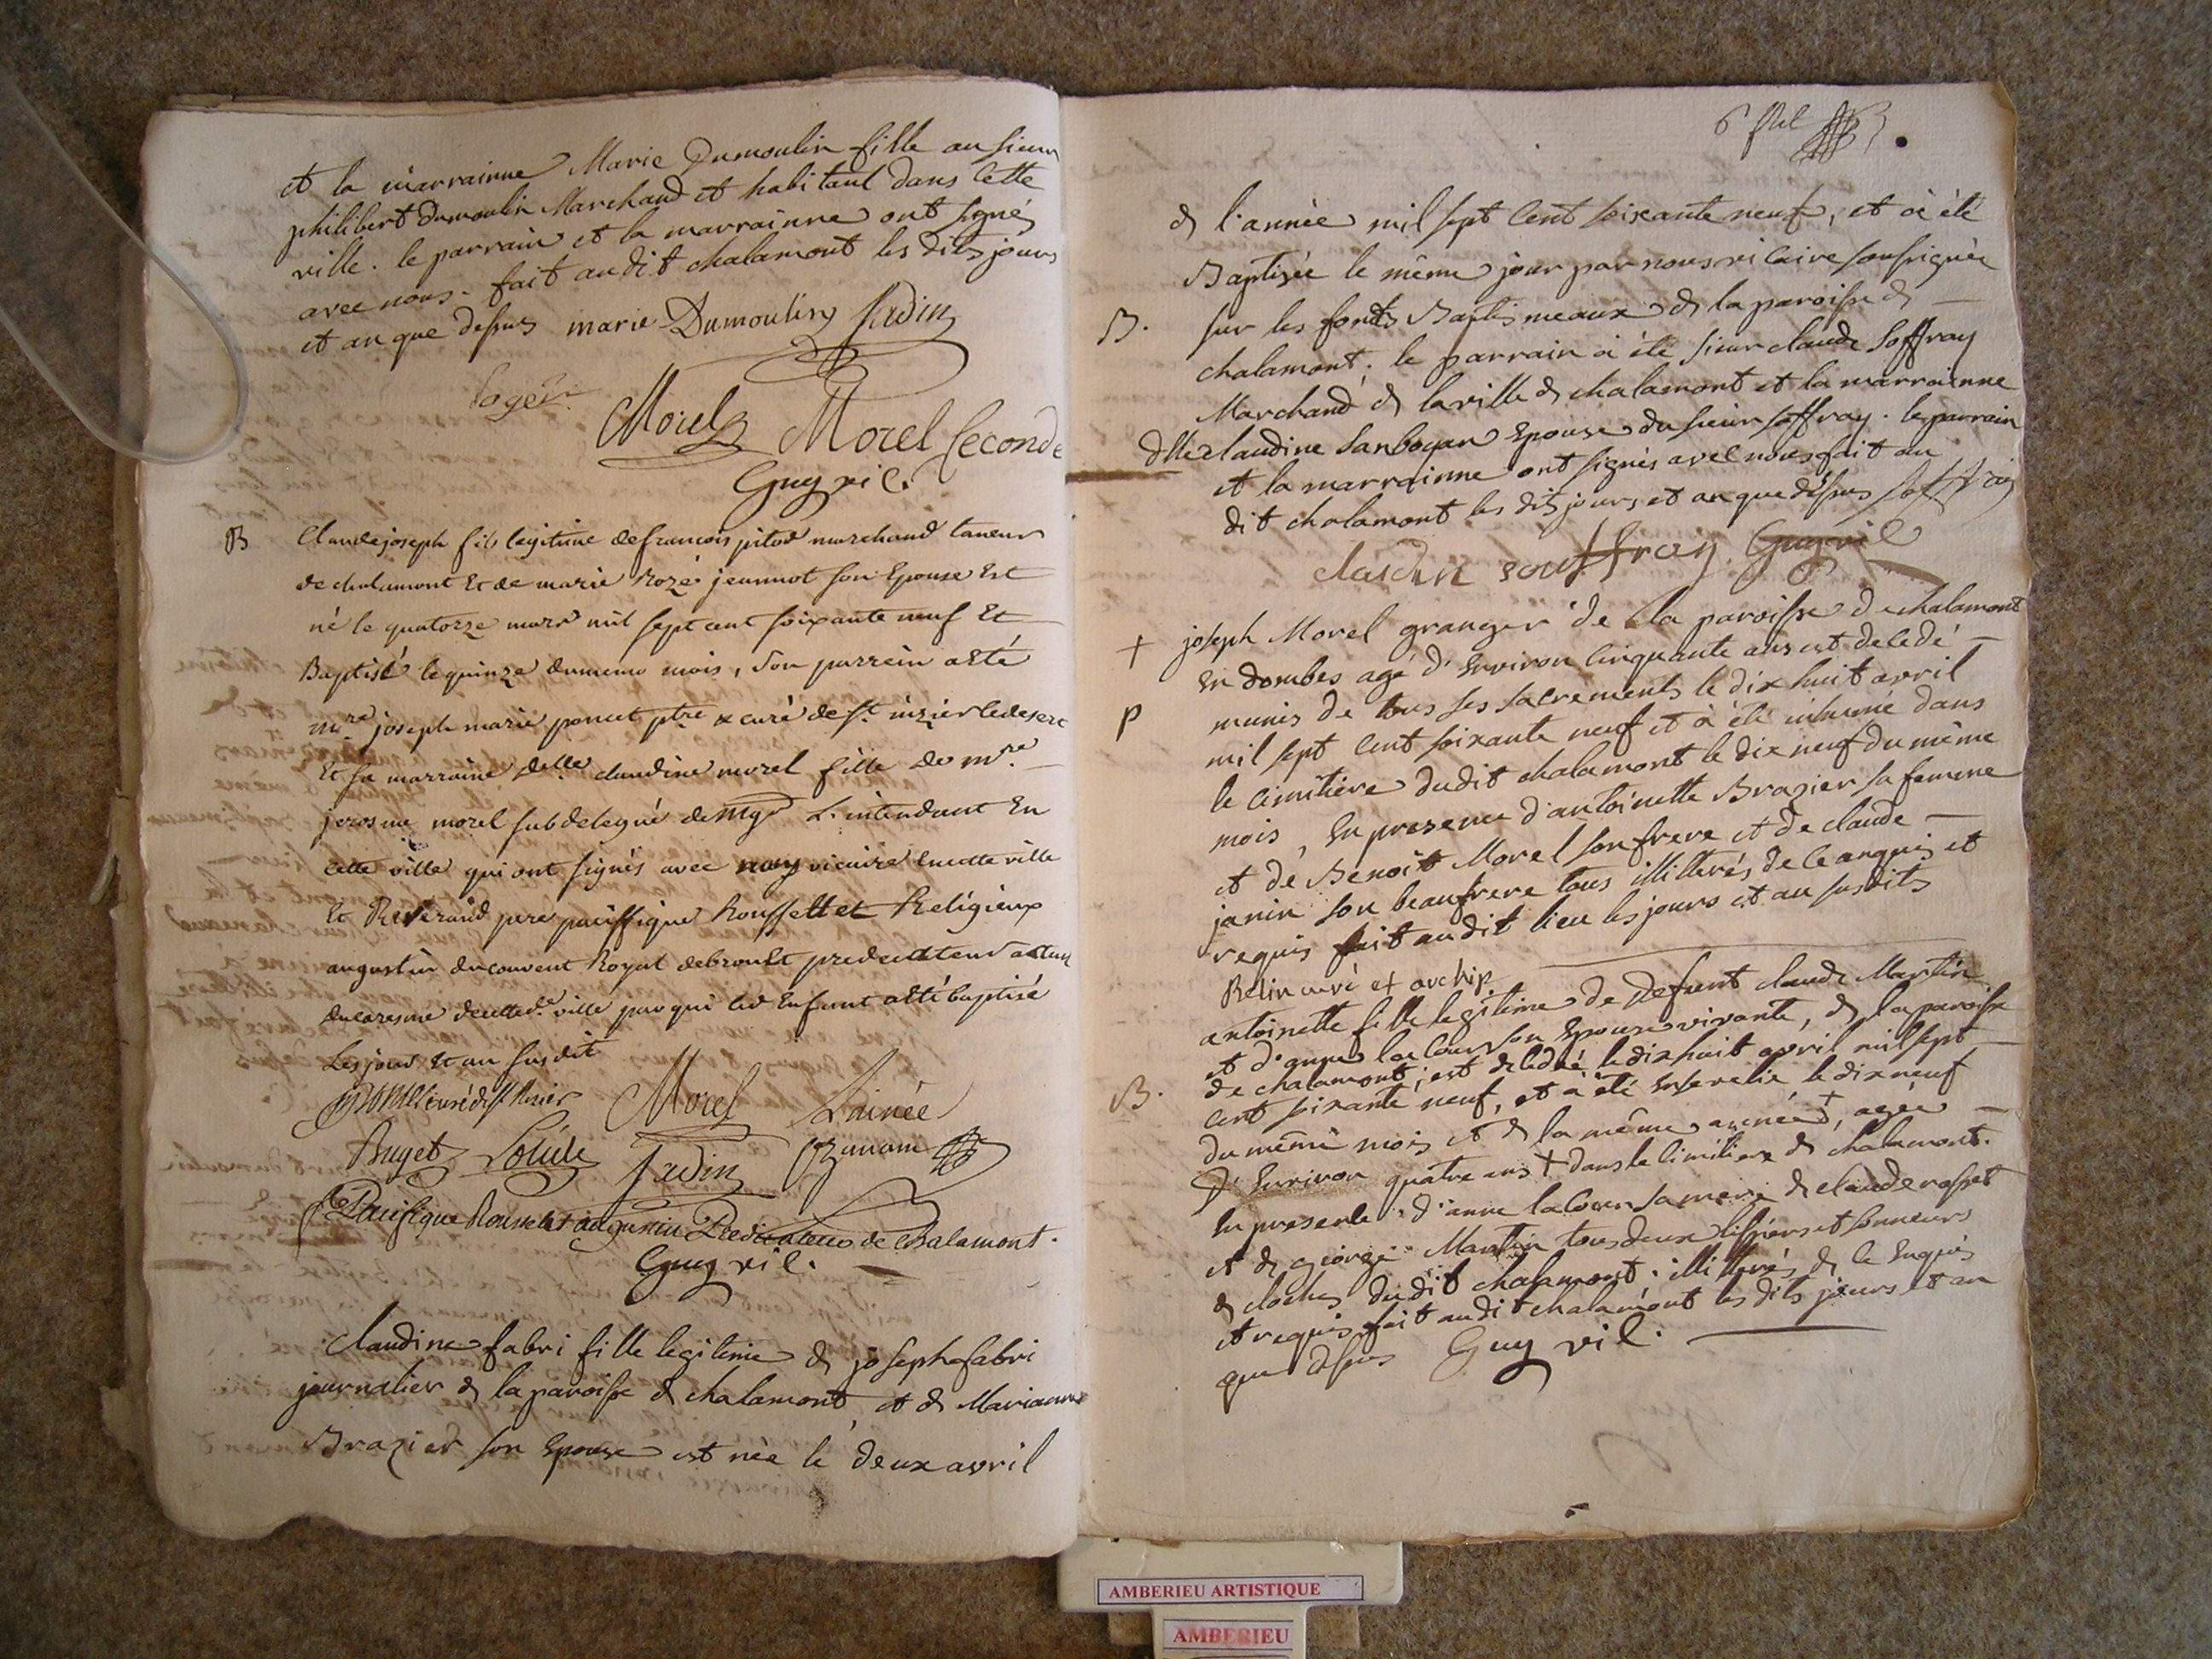 et la marrainne Marie Dumoulin fille au sieur
philibert dumoulin Marchand et habitant dans cette
ville. le parrain et la marrainne ont signés
avec nous. fait audit chalamont les dits jours
et an que dessus marie Dumoulin Jadin
Morel Morel seconde
Guy vic.
B Claude joseph fils legitime de francois pitod marchand taneur
de chalamont Et de marie Roze jeannot son Epouse Est
né le quatorze mars mil sept cent soixante neuf Et
Baptisé le quinze du meme mois, Son parrein a Eté
mre joseph marie poncet ptre & curé de st nizier le desert
Et sa marraine delle claudine morel fille de mre
jerosme morel subdelegué de Mgr L'intendant En
cette ville qui ont signés avec nous vicaire en cette ville
Et Reverand pere paciffique Roussellet Religieux
augustin du couvent Royal de brou Et predicateur actuel
du caresme de cette de ville par qui led Enfant a Eté baptisé
Les jour & an susdit
poncet curé de st Nizier Morel L'ainée
Buget Jadin
Pacifique Rousselet augustin Predicateur de Chalamont.
Guy vic.
claudine fabri fille legitime de joseph fabri
journalier de la paroisse de chalamont, et de Marianne
Brazier son Epouse est née le deux avril
6
de l'année mil sept cent soixante neuf, et à été
Baptisée le même jour par nous vicaire soussignée
B. sur les fonts Baptismeaux de la paroisse de
chalamont. le parrain à été sieur claude Soffray
Marchand de la ville de chalamont et la marrainne
dlle claudine Epouse du sieur soffray. le parrain
et la marrainne ont signés avec nous fait au
dit chalamont les dits jours et an que dessus soffray
claudine souffray Guy vic
+ joseph Morel granger de la paroisse de chalamont
en dombes agé d'environ cinquante ans est decedé
P munis de tous ses sacrements le dix huit avril
mil sept cent soixante neuf et à été inhumé dans
le cimitière dudit chalamont le dix neuf du même
mois, en presence d'antoinette Brazier sa femme
et de Benoit Morel son frere et de claude
janin son beaufrere tous illitterés de ce enquis et
requis fait audit lieu les jours et an susdits
curé et archip.
antoinette fille legitime de defunt claude Martin
et d'anne lacour son Epouse vivante, de la paroisse
B. de chalamont, est decedée le dix huit avril mil sept
cent soixante neuf, et à été ensevelie le dix neuf
du même mois et de la même année +, agée
d'Environ quatre ans + dans le cimitiere de chalamont.
En presence d'anne lacour sa mere de claude rosset
et de george Martin tous deux et sonneurs
de cloches dudit chalamont. illitterés de ce Enquis
et requis fait audit chalamont les dits jours et an
que dessus Guy vic.
AMBERIEU ARTISTIQUE
AMBERIEU